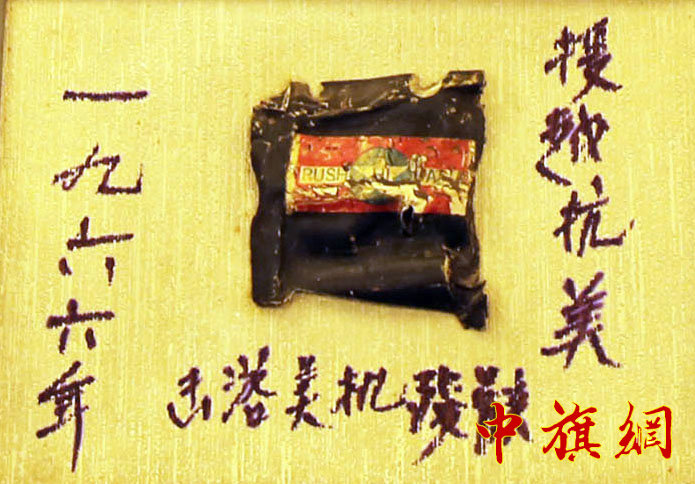 援越抗美
一九六六年
击落美机残骸
PUSH
中旗網